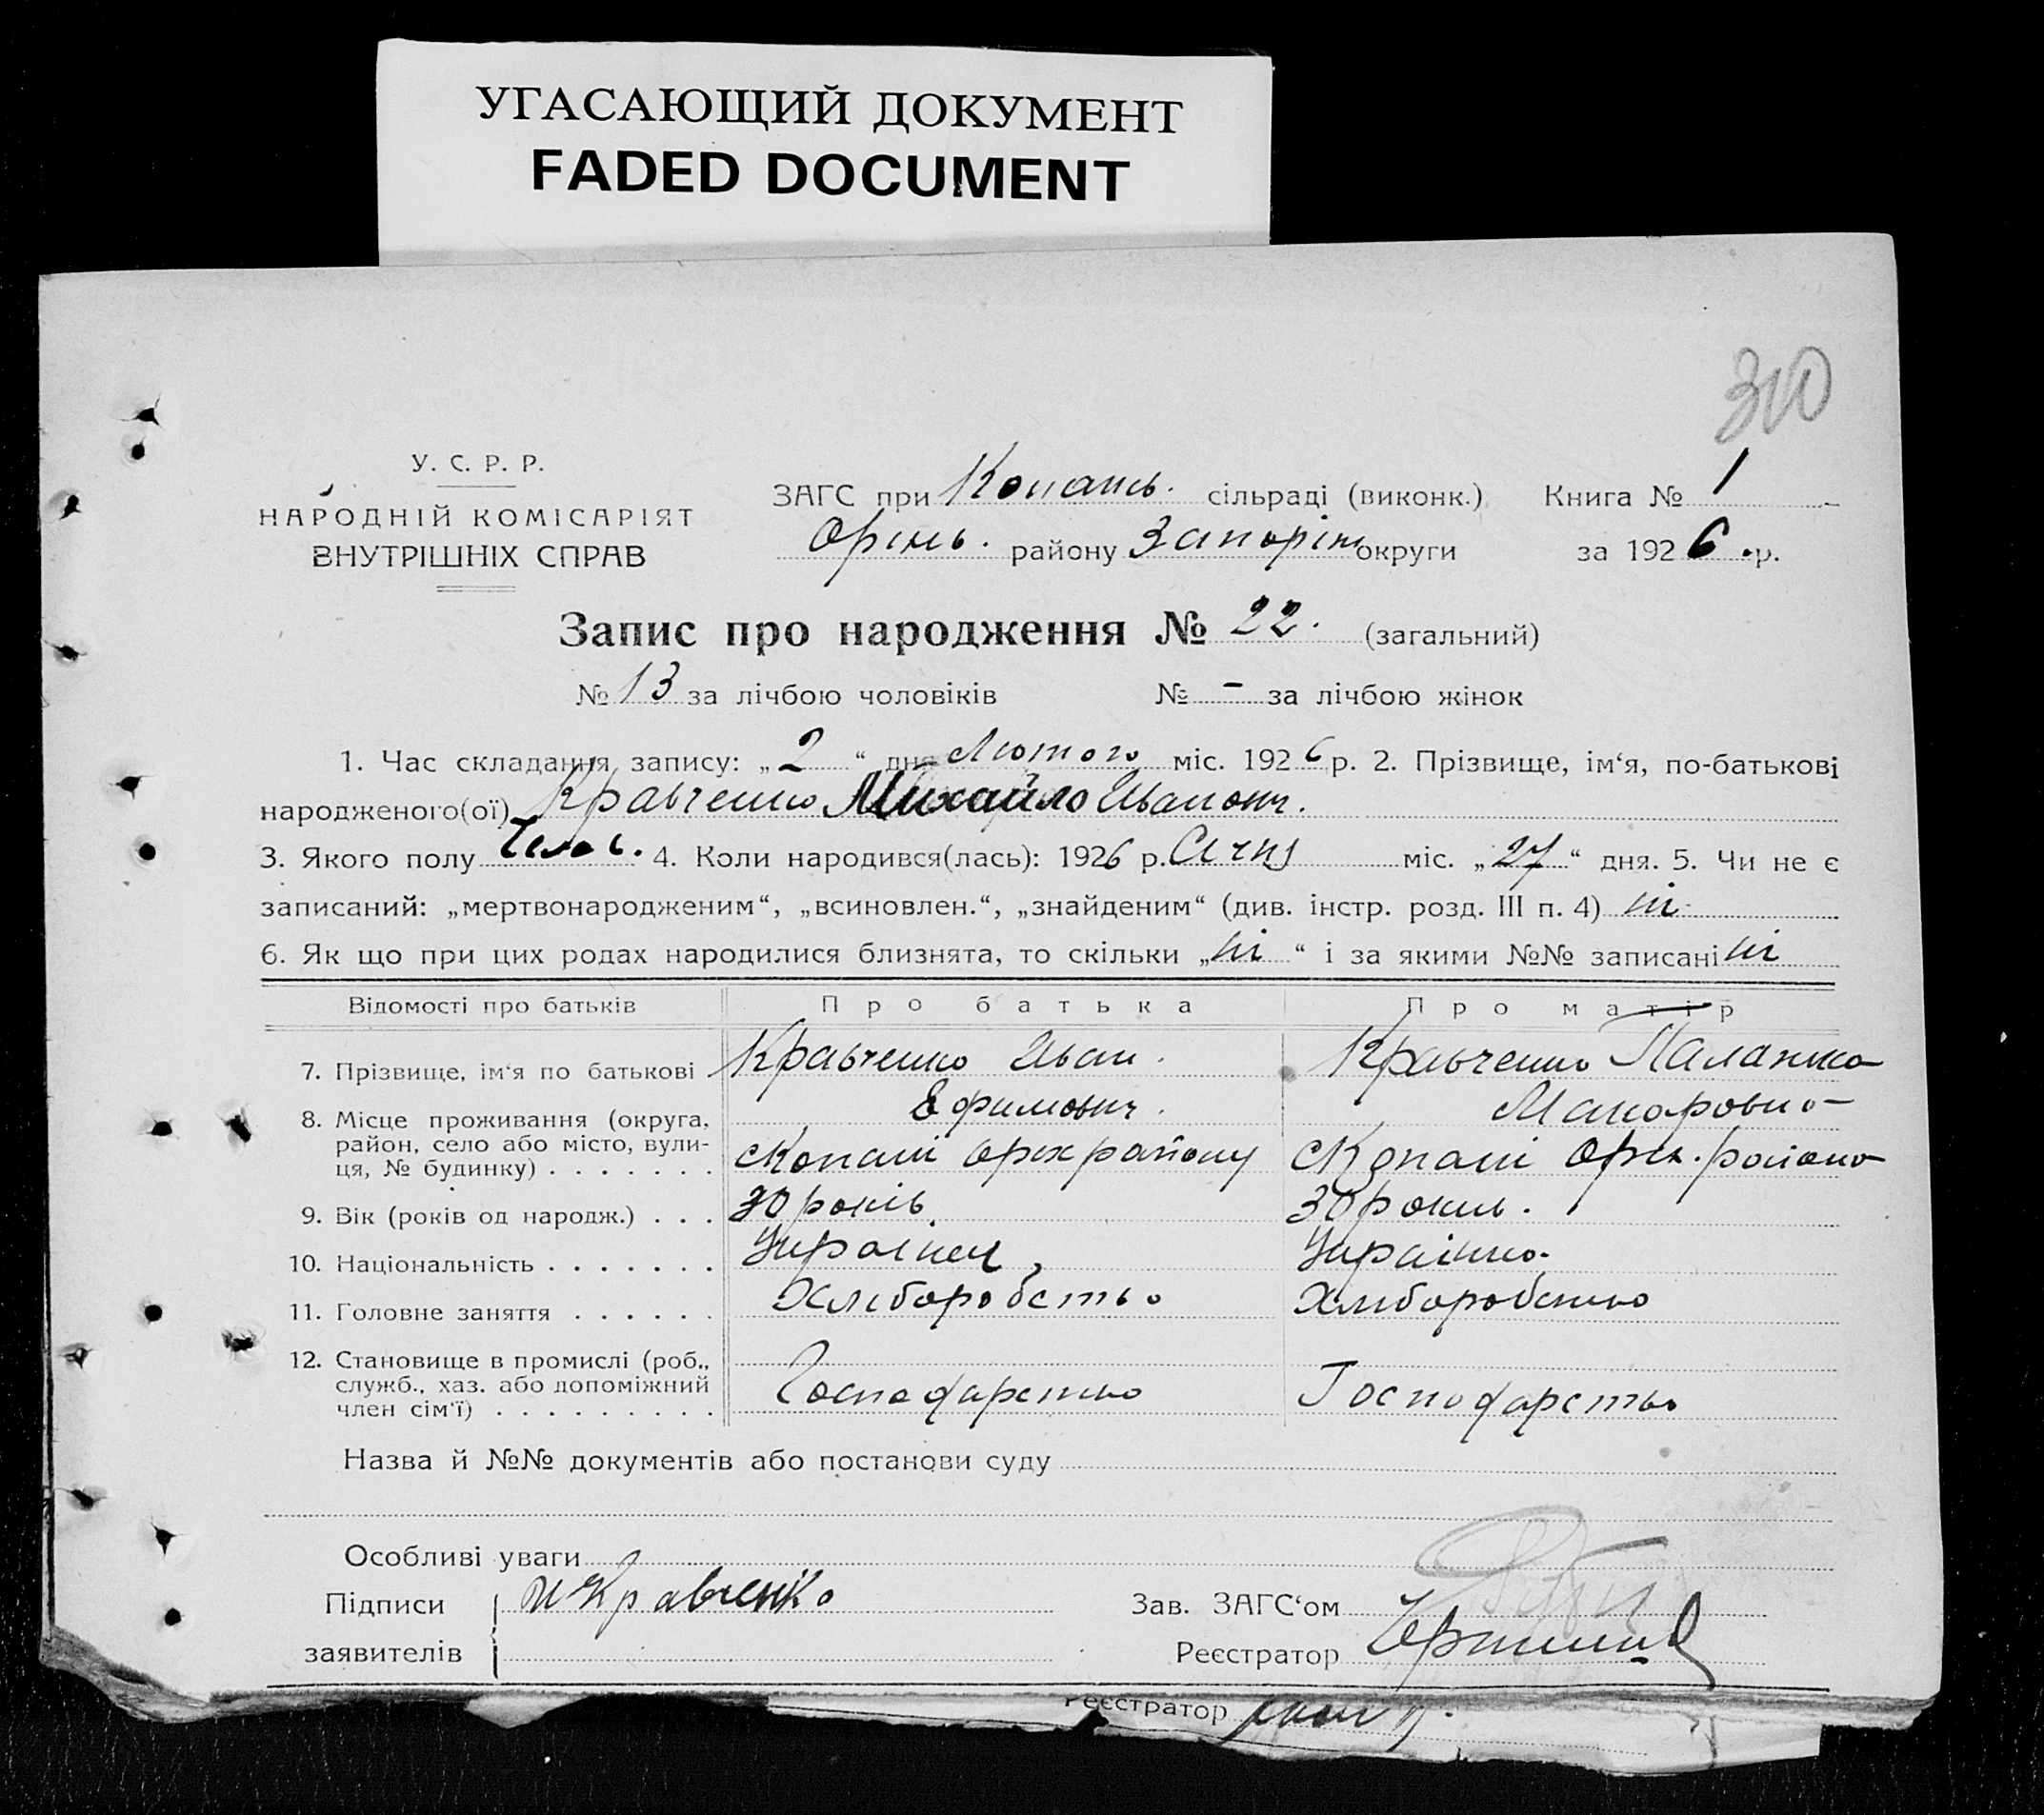 УГАСАЮЩИЙ ДОКУМЕНТ
FADED DOCUMENT
310
У. С. Р. Р.
НАРОДНІЙ КОМІСАРІЯТ
ВНУТРІШНІХ СПРАВ
ЗАГС при Копань. сільраді (виконк.) Книга № 1
Оріхь. району Запоріж округи за 1926 р.
Запис про народження № 22. (загальний)
№ 13 за лічбою чоловіків № - за лічбою жінок
1. Час складання запису: „2“ дня Лютого міс. 1926 р. 2. Прізвище, ім‘я, по-батькові
народженого(ої) Кравченко Михайло Иванович.
3. Якого полу Чолов. 4. Коли народився(лась): 1926 р. Січня міс. „27“ дня. 5. Чи не є
записаний: „мертвонародженим“, „всиновлен.“, „знайденим“ (див. інстр. розд. III п. 4) ні
6. Як що при цих родах народилися близнята, то скільки „ні“ і за якими №№ записані ні
Відомості про батьків Про батька Про матір
7. Прізвище, ім‘я по батькові Кравченко Иван. Кравченко Палажка
Ефимович. Макаровна
8. Місце проживання (округа,
район, село або місто, вули-
ця, № будинку) . . . . . . . с Копані Оріх району с Копані Оріх. району
9. Вік (років од народж.) . . . 30 років. 30 років.
10. Національність . . . . . . . Українец, Українка.
11. Головне заняття . . . . . . Хліборобство Хліборобство
12. Становище в промислі (роб.,
служб., хаз. або допоміжний
член сім‘ї) . . . . . . . . . Господарство Господарство
Назва й №№ документів або постанови суду
Особливі уваги
Підписи И Кравченко Зав. ЗАГС‘ом
заявителів Реєстратор
Реєстратор